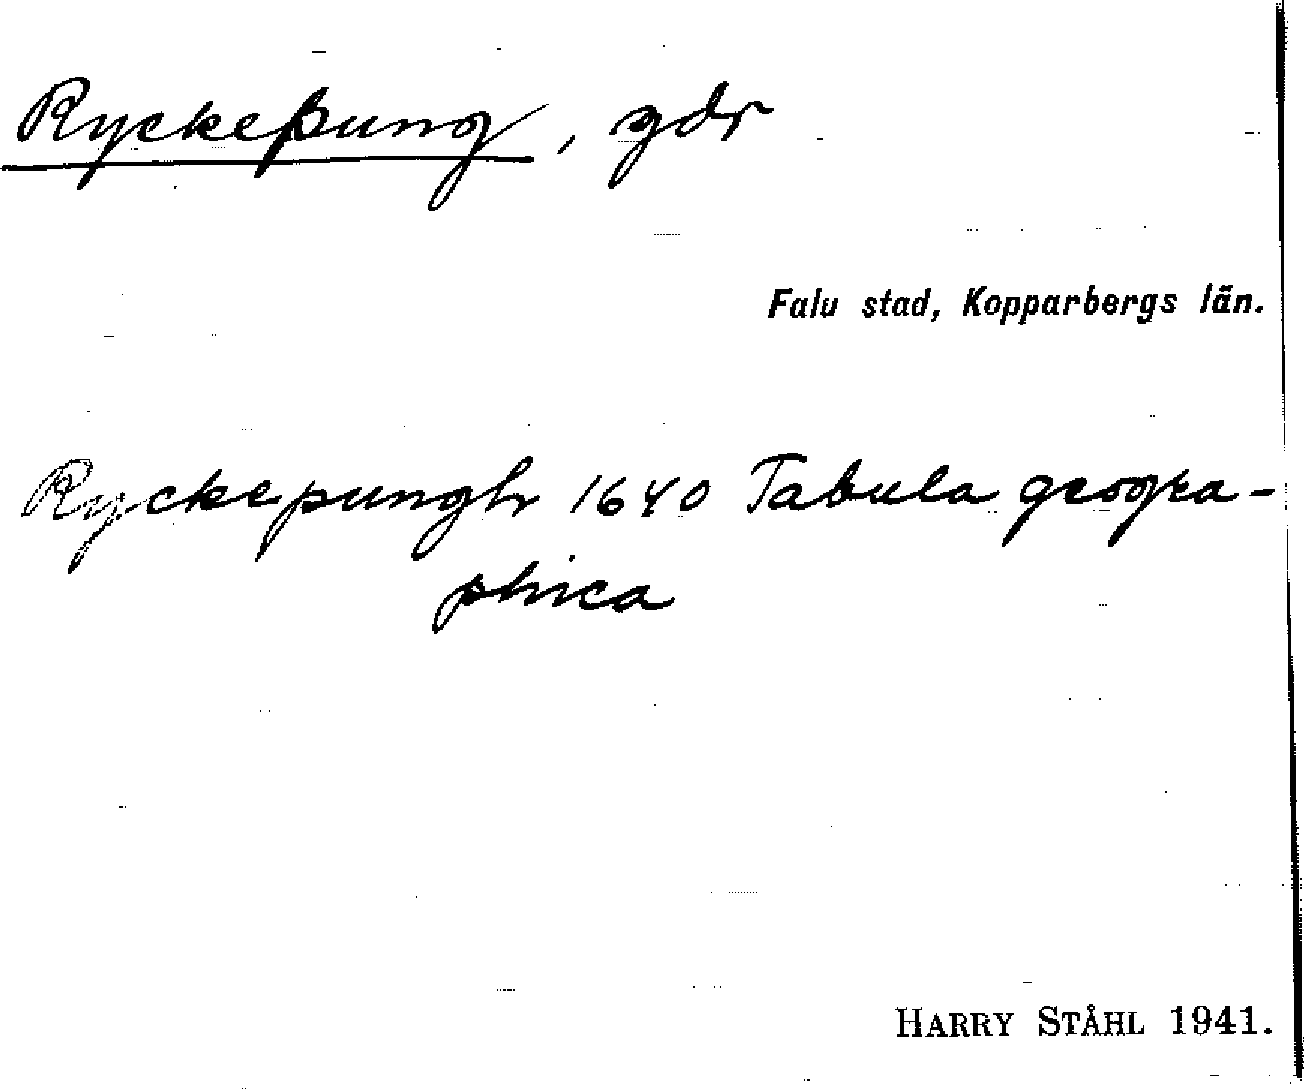 Ryckepung, gdr
Falu stad, Kopparbergs län.
Ryckepungh 1640 Tabula geogra-
phica
HARRY STÅHL 1941.